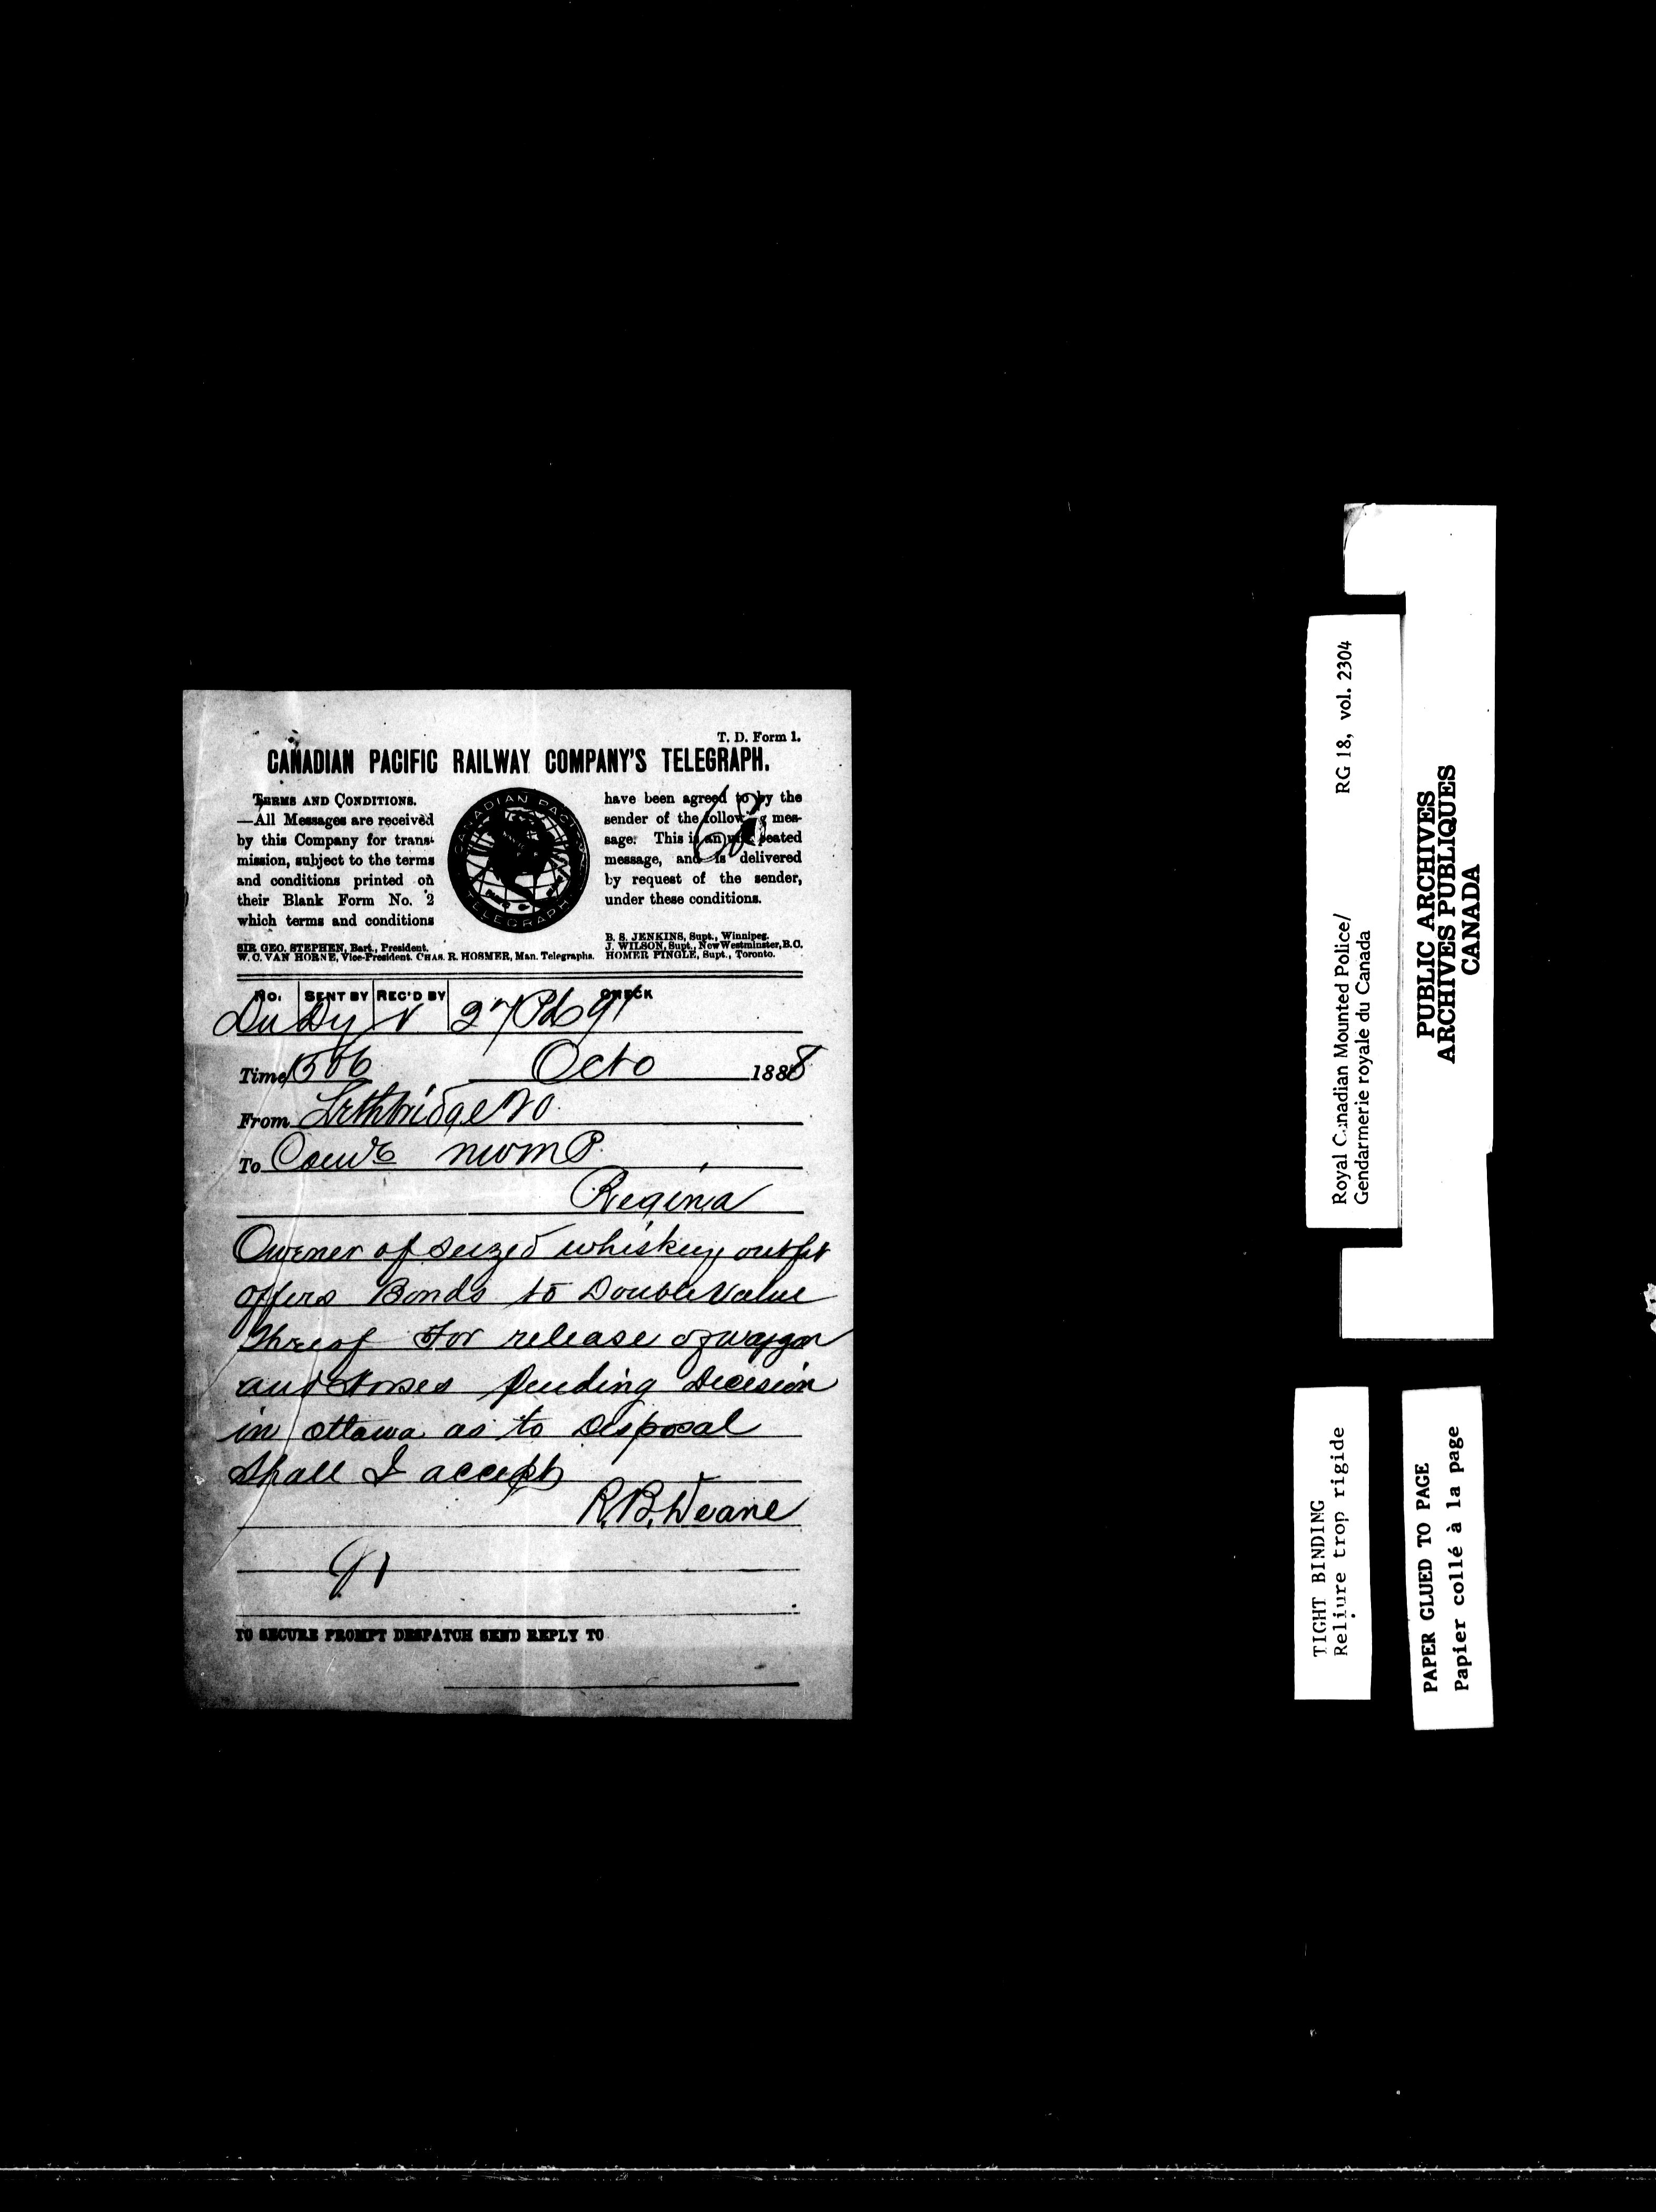 T. D. Form 1.
CANADIAN PACIFIC RAILWAY COMPANY'S TELEGRAPH.
TERMS AND CONDITIONS.
—All Messages are received
by this Company for trans-
mission, subject to the terms
and conditions printed on
their Blank Form No. 2
which terms and conditions
CANADIAN PACIFIC
TELEGRAPH
have been agreed to by the
sender of the following mes-
sage. This is an unrepeated
message, and is delivered
by request of the sender,
under these conditions.
SIR GEO. STEPHEN, Bart., President.
W. C. VAN HORNE, Vice-President. CHAS. R. HOSMER, Man. Telegraphs.
B. S. JENKINS, Supt., Winnipeg.
J. WILSON, Supt., New Westminster, B.C.
HOMER PINGLE, Supt., Toronto.
NO. SENT BY REC'D BY CHECK
Du Dy V 27 Pd 91
Time 1506 Octo 1888
From Lethbridge 20
To NWMP
Regina
Owner of seized whiskey outfit
offers Bonds to Double Value
threof For release of waggon
and Horses pending Decision
in ottawa as to Disposal
Shall I accept
R.B. Deane
91
TO SECURE PROMPT DESPATCH SEND REPLY TO
Royal Canadian Mounted Police/ RG 18, vol. 2304
Gendarmerie royale du Canada
PUBLIC ARCHIVES
ARCHIVES PUBLIQUES
CANADA
TIGHT BINDING
Reliure trop rigide
PAPER GLUED TO PAGE
Papier collé à la page